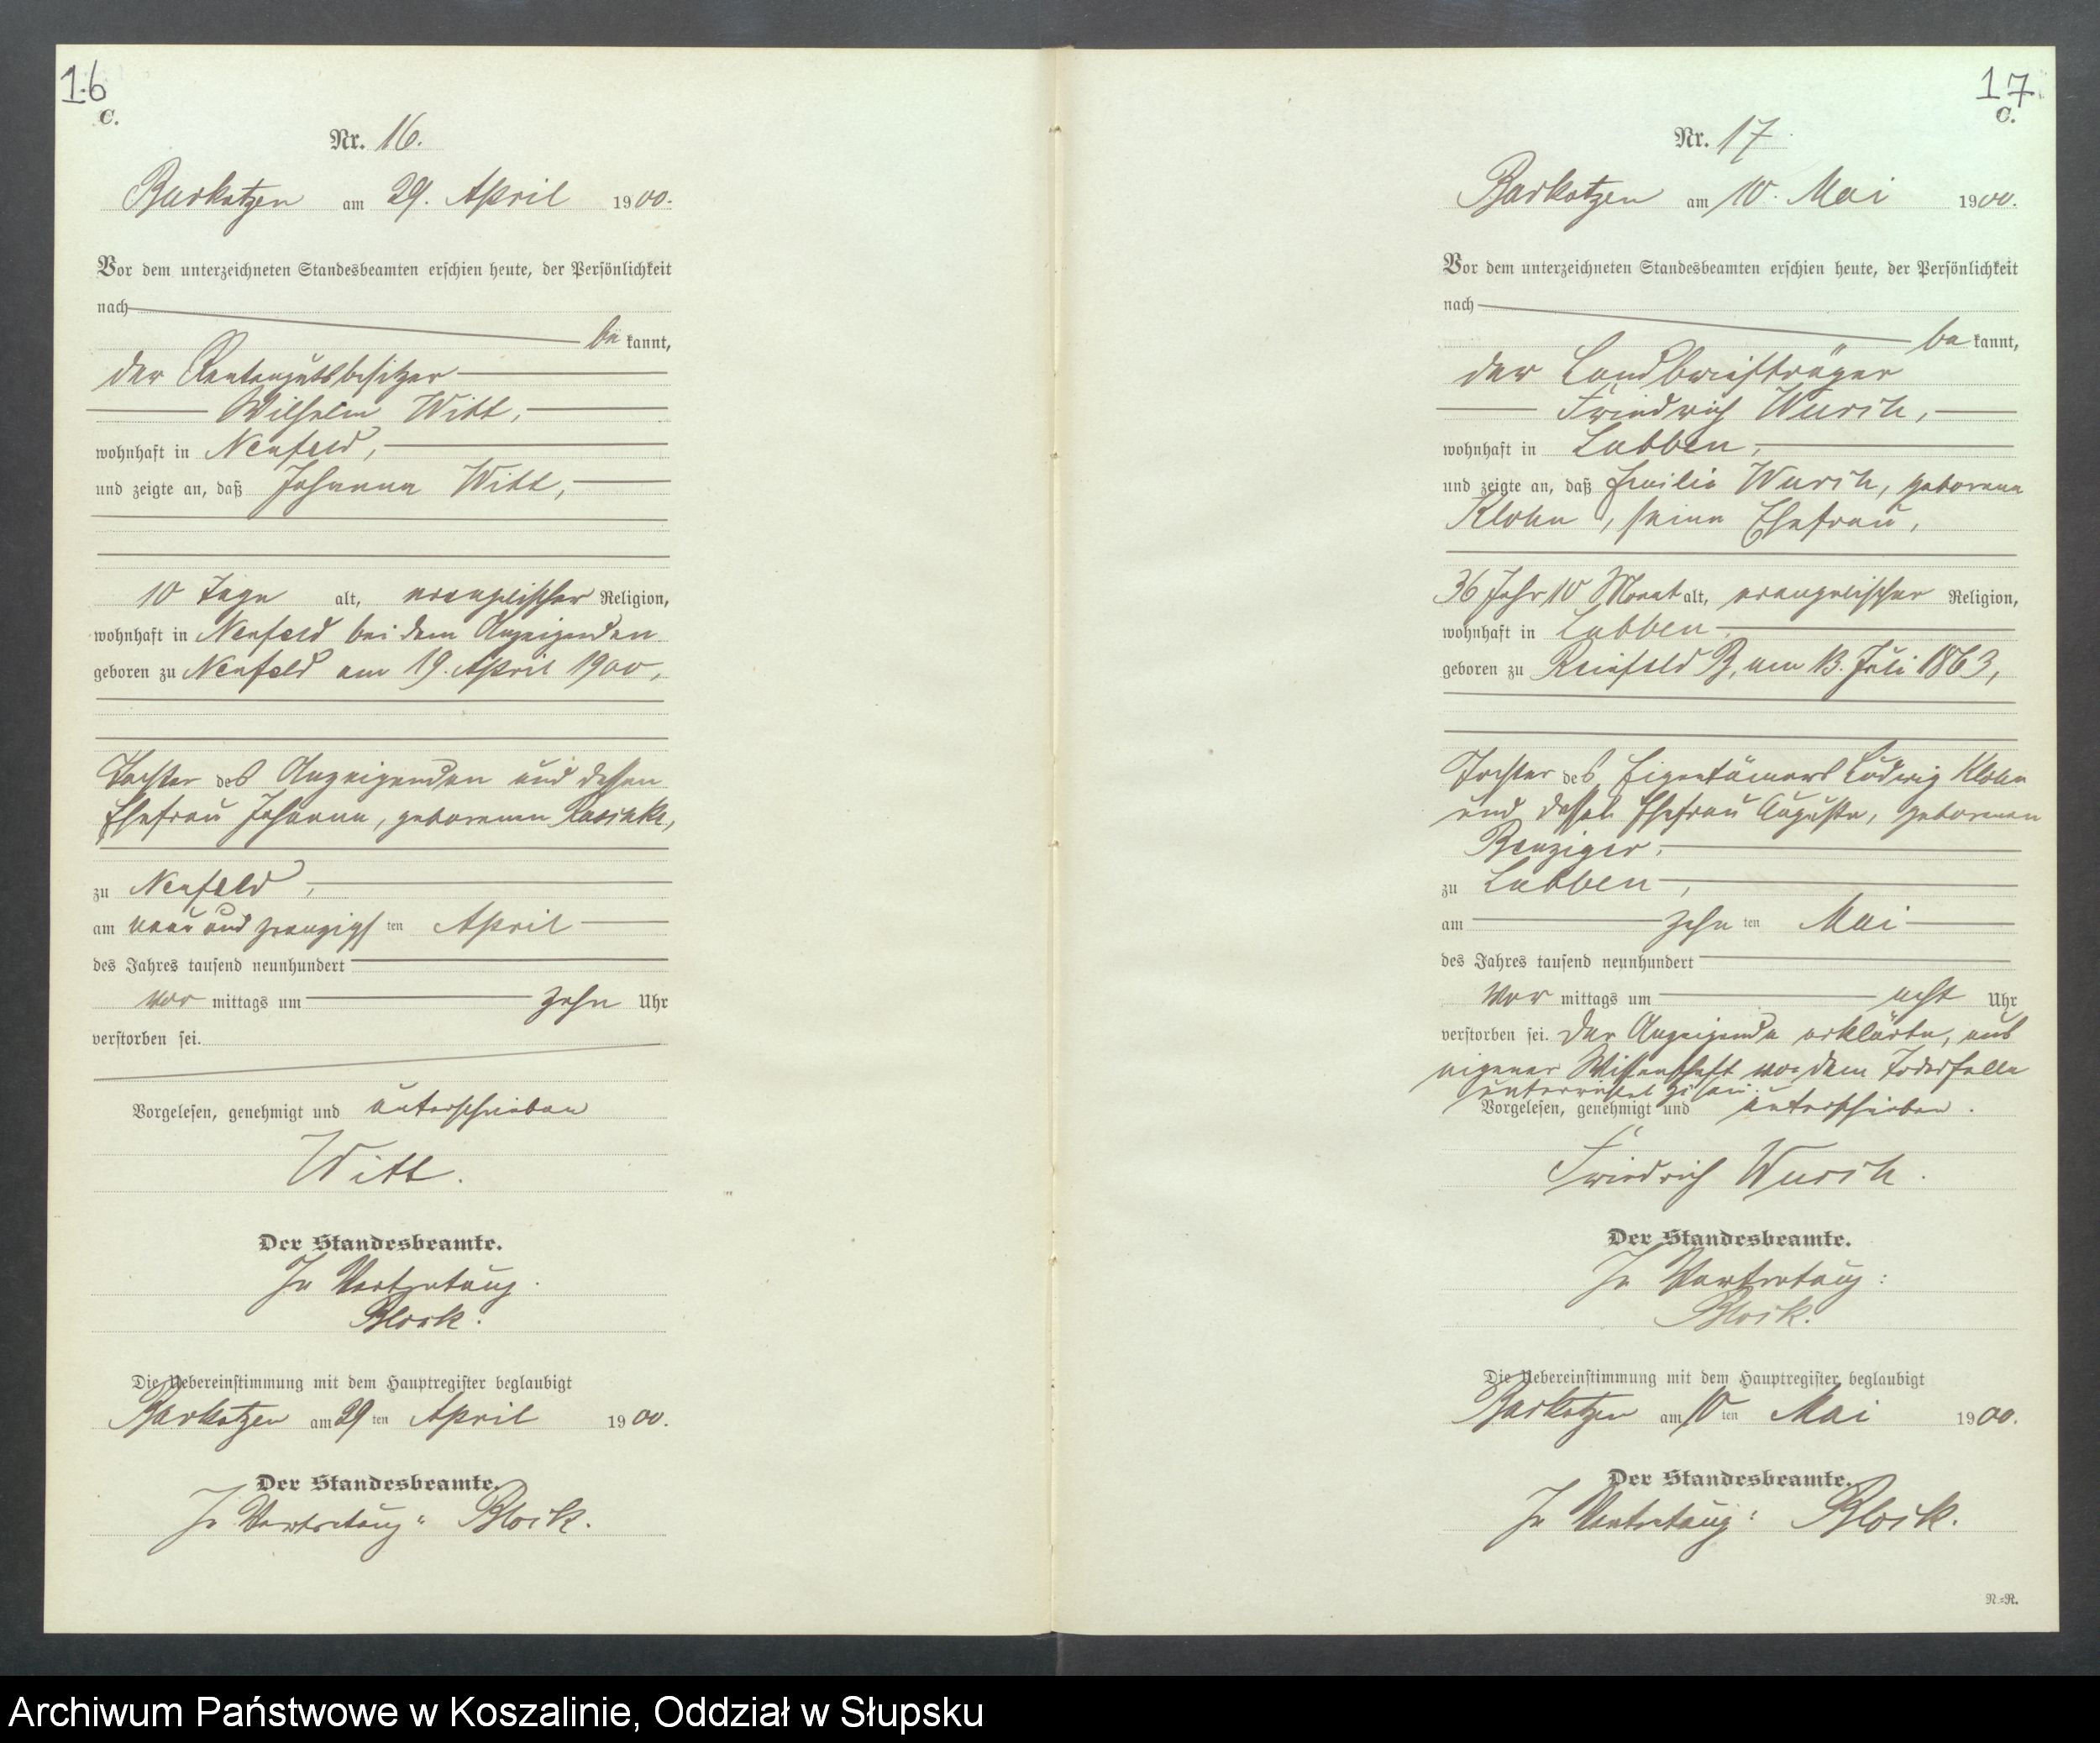 16
C.
Nr. 16.
Barkotzen am 29. April 1900.
Vor dem unterzeichneten Standesbeamten erschien heute, der Persönlichkeit
nach
be kannt,
der Rentengutsbesitzer
Wilhelm Witt,
wohnhaft in Neufeld,
und zeigte an, daß Johanna Witt,
10 Tage alt, evangelischer Religion,
wohnhaft in Neufeld bei dem Anzeigenden
geboren zu Neufeld am 19. April 1900,
Tochter des Anzeigenden und dessen
Ehefrau Johanna, geborenen
zu Neufeld,
am neun und zwanzigsten April
des Jahres tausend neunhundert
vor mittags um zehn Uhr
verstorben sei.
Vorgelesen, genehmigt und unterschrieben
Witt.
Der Standesbeamte.
In Vertretung.
Block.
Die Uebereinstimmung mit dem Hauptregister beglaubigt
Barkotzen am 29ten April 1900.
Der Standesbeamte.
In Vertretung: Block.
17.
C.
Nr. 17
Barkotzen am 10. Mai 1900.
Vor dem unterzeichneten Standesbeamten erschien heute, der Persönlichkeit
nach
be kannt,
der Landbriefträger
Friedrich Wursch,
wohnhaft in Lubben,
und zeigte an, daß Emilie Wursch, geborene
Klohn, seine Ehefrau,
36 Jahr 10 Monat alt, evangelischer Religion,
wohnhaft in Lubben,
geboren zu Reinfeld B, am 13. Juli 1863,
Tochter des Eigentümers Ludwig Klohn
und dessen Ehefrau Auguste, geborenen
Benziger,
zu Lubben,
am zehnten Mai
des Jahres tausend neunhundert
Vor mittags um acht Uhr
verstorben sei. Der Anzeigende erklärte, aus
eigener Wissenschaft von dem Todesfalle
unterrichtet zu sein.
Vorgelesen, genehmigt und unterschrieben.
Friedrich Wursch.
Der Standesbeamte.
In Vertretung:
Block.
Die Uebereinstimmung mit dem Hauptregister beglaubigt
Barkotzen am 10ten Mai 1900.
Der Standesbeamte.
In Vertretung: Block.
N.=R.
Archiwum Państwowe w Koszalinie, Oddział w Słupsku